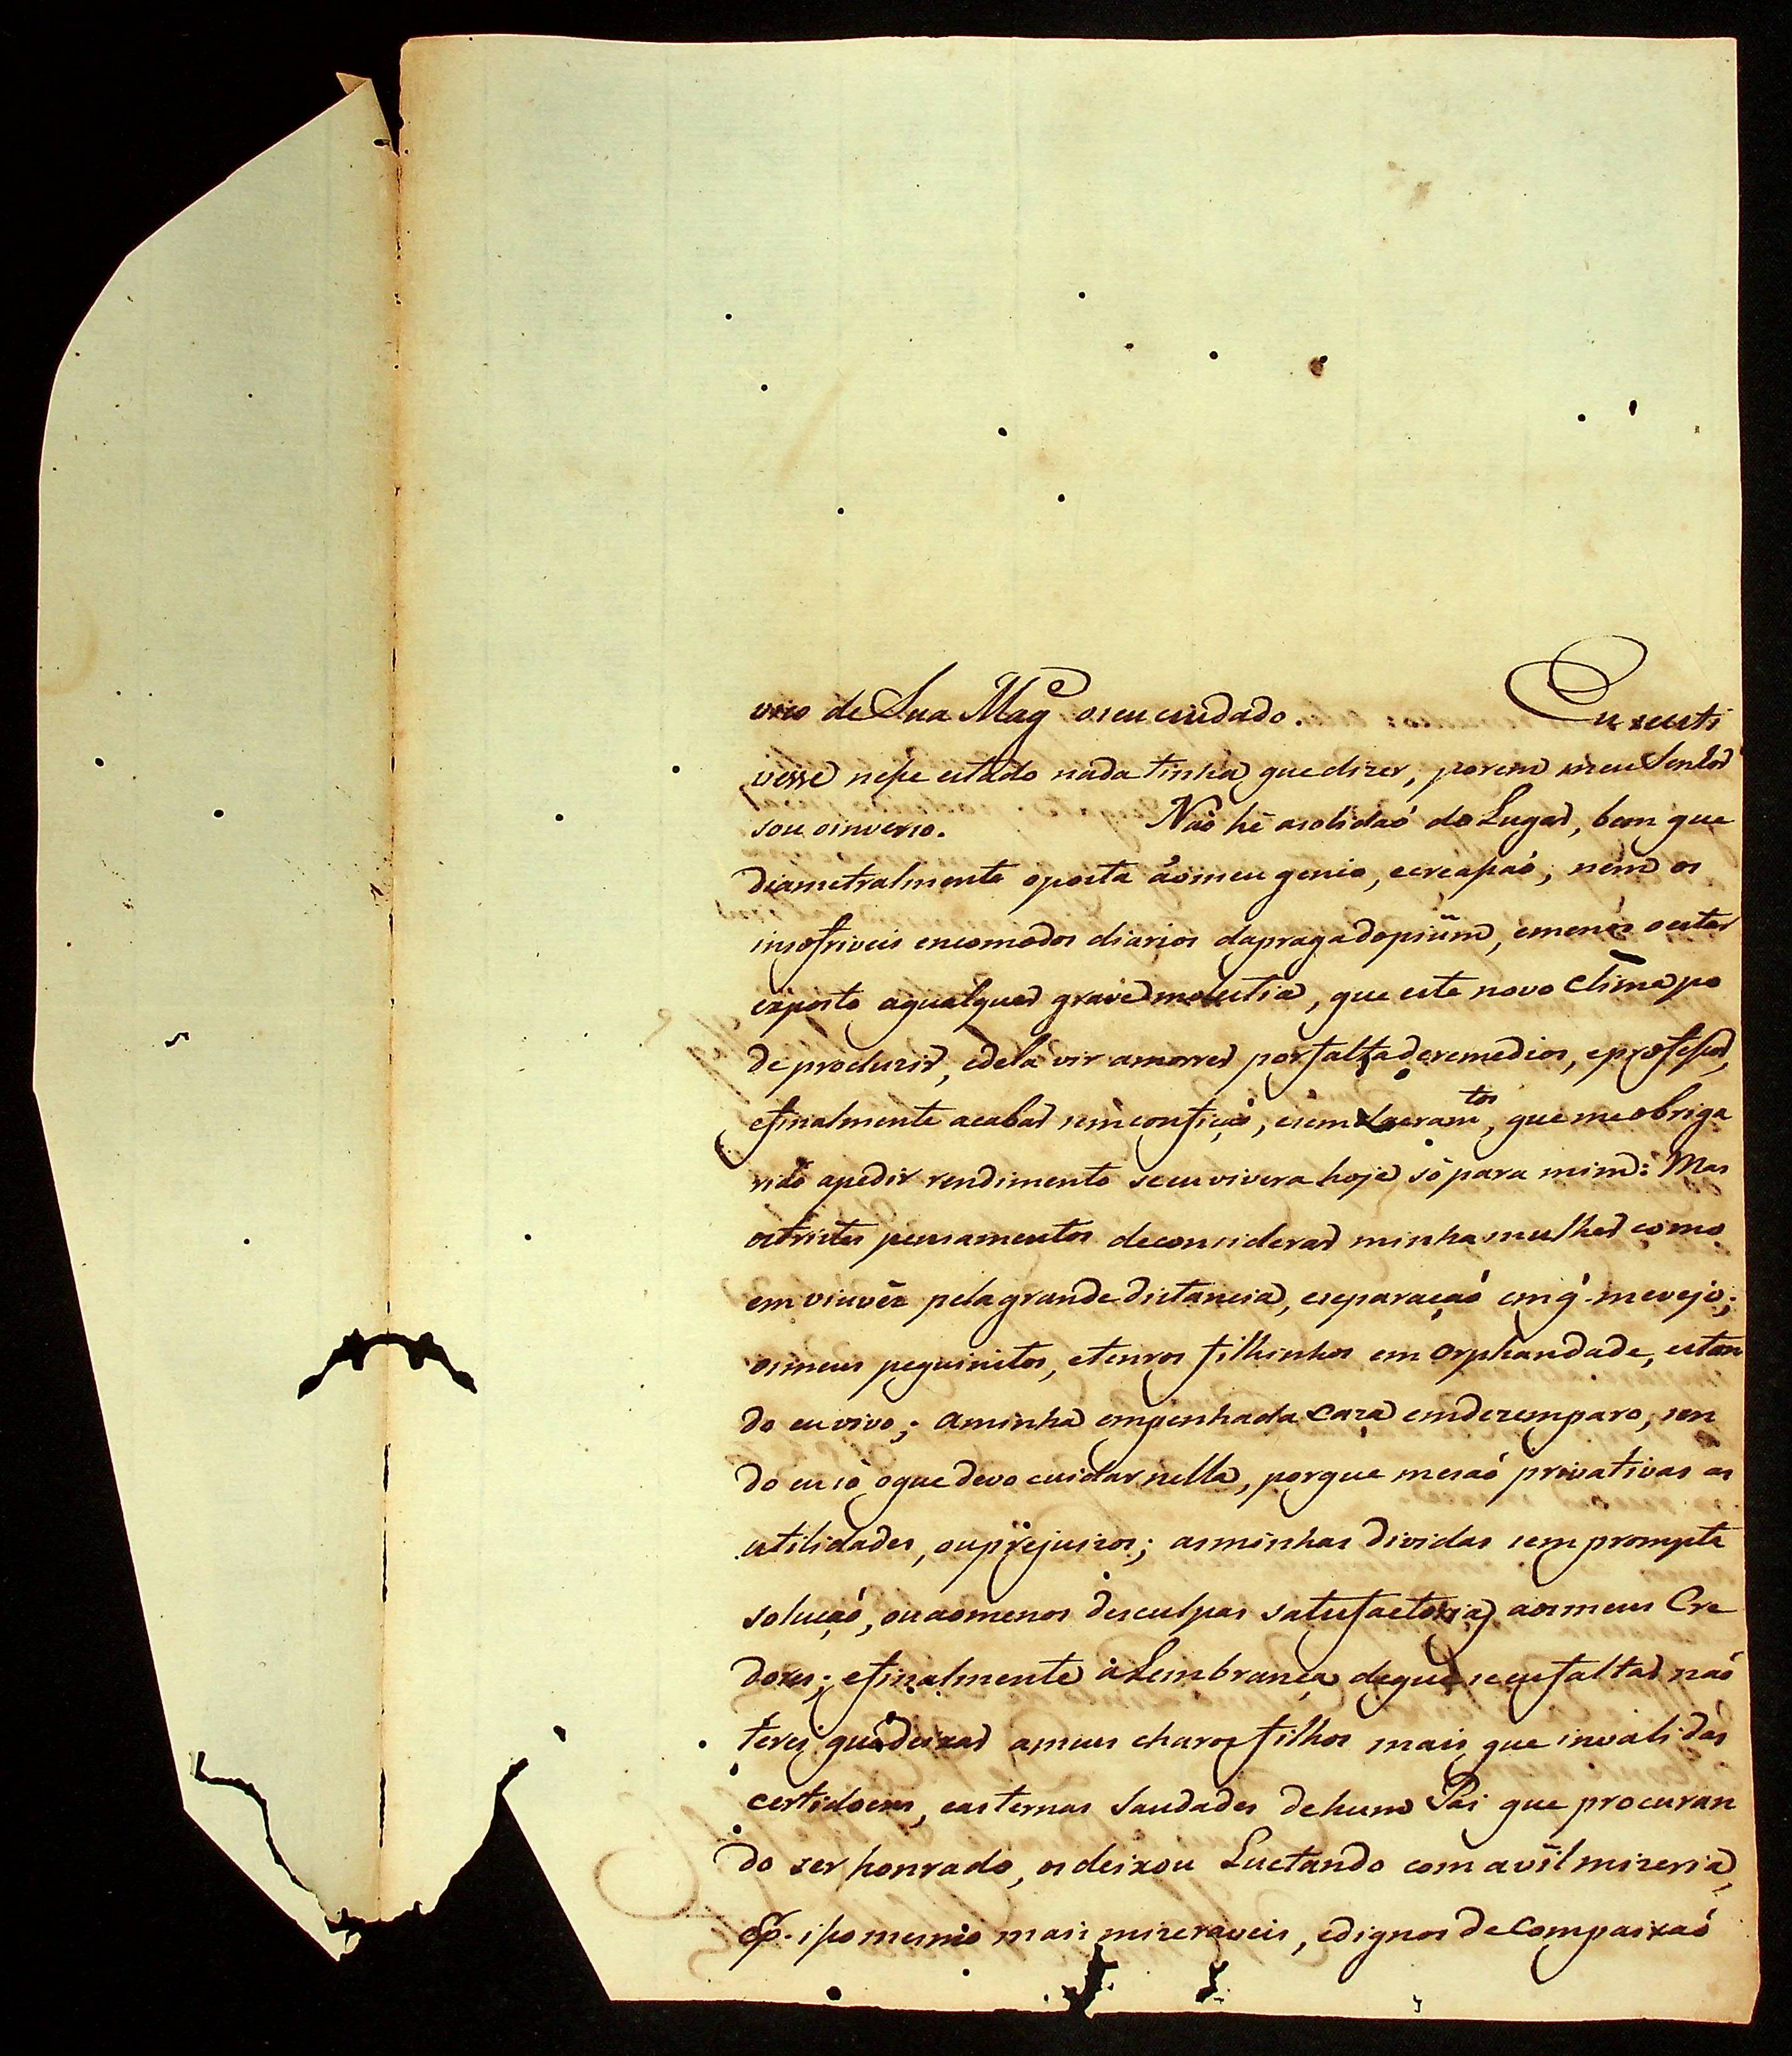 viso de Sua Mag.e o seu cuidado. Eu se esti
vesse nesse estado nada tinha que dizer, porem meu Senhor
sou o inverso. Não hé a solidaó do Lugar, bem que
diametralmente oposta áo meu genio, e creaçaó, nem os
insofriveis encomodos diarios da praga do piūm, e menos o estar
exposto a qualquer grave molestia, que este novo Clima po
de produzir, e dela vir a morrer por falta de remedios, e professor,
e finalmente acabar sem confiçaó, e sem Sacram.tos, que me obriga
riaó a pedir rendimento se eu vivera hoje só para mim: Mas
os tristes pensamentos de considerar minha mulher como
em viuvêz pela grande distancia, e separaçaó em q̃ me vejo;
os meus pequinitos, e tenros filhinhos em Orphandade, estan
do eu vivo; a minha empenhada caza em dezemparo, sen
do eu só o que devo cuidar nella, porque me saó privativas as
utilidades, ou prejuizos; as minhas dividas sem prompta
soluçaó, ou ao menos desculpas satisfactorias aos meus Cre
dores; e finalmente a Lembrança de que se eu faltar naó
terei que deixar a meus charos filhos mais que invalidas
certidoens, e as ternas saudades de hum Pai que procuran
do ser honrado, os deixou Luctando com a vil mizeria,
e p. isso mesmo mais mizeraveis, e dignos de Compaixaó